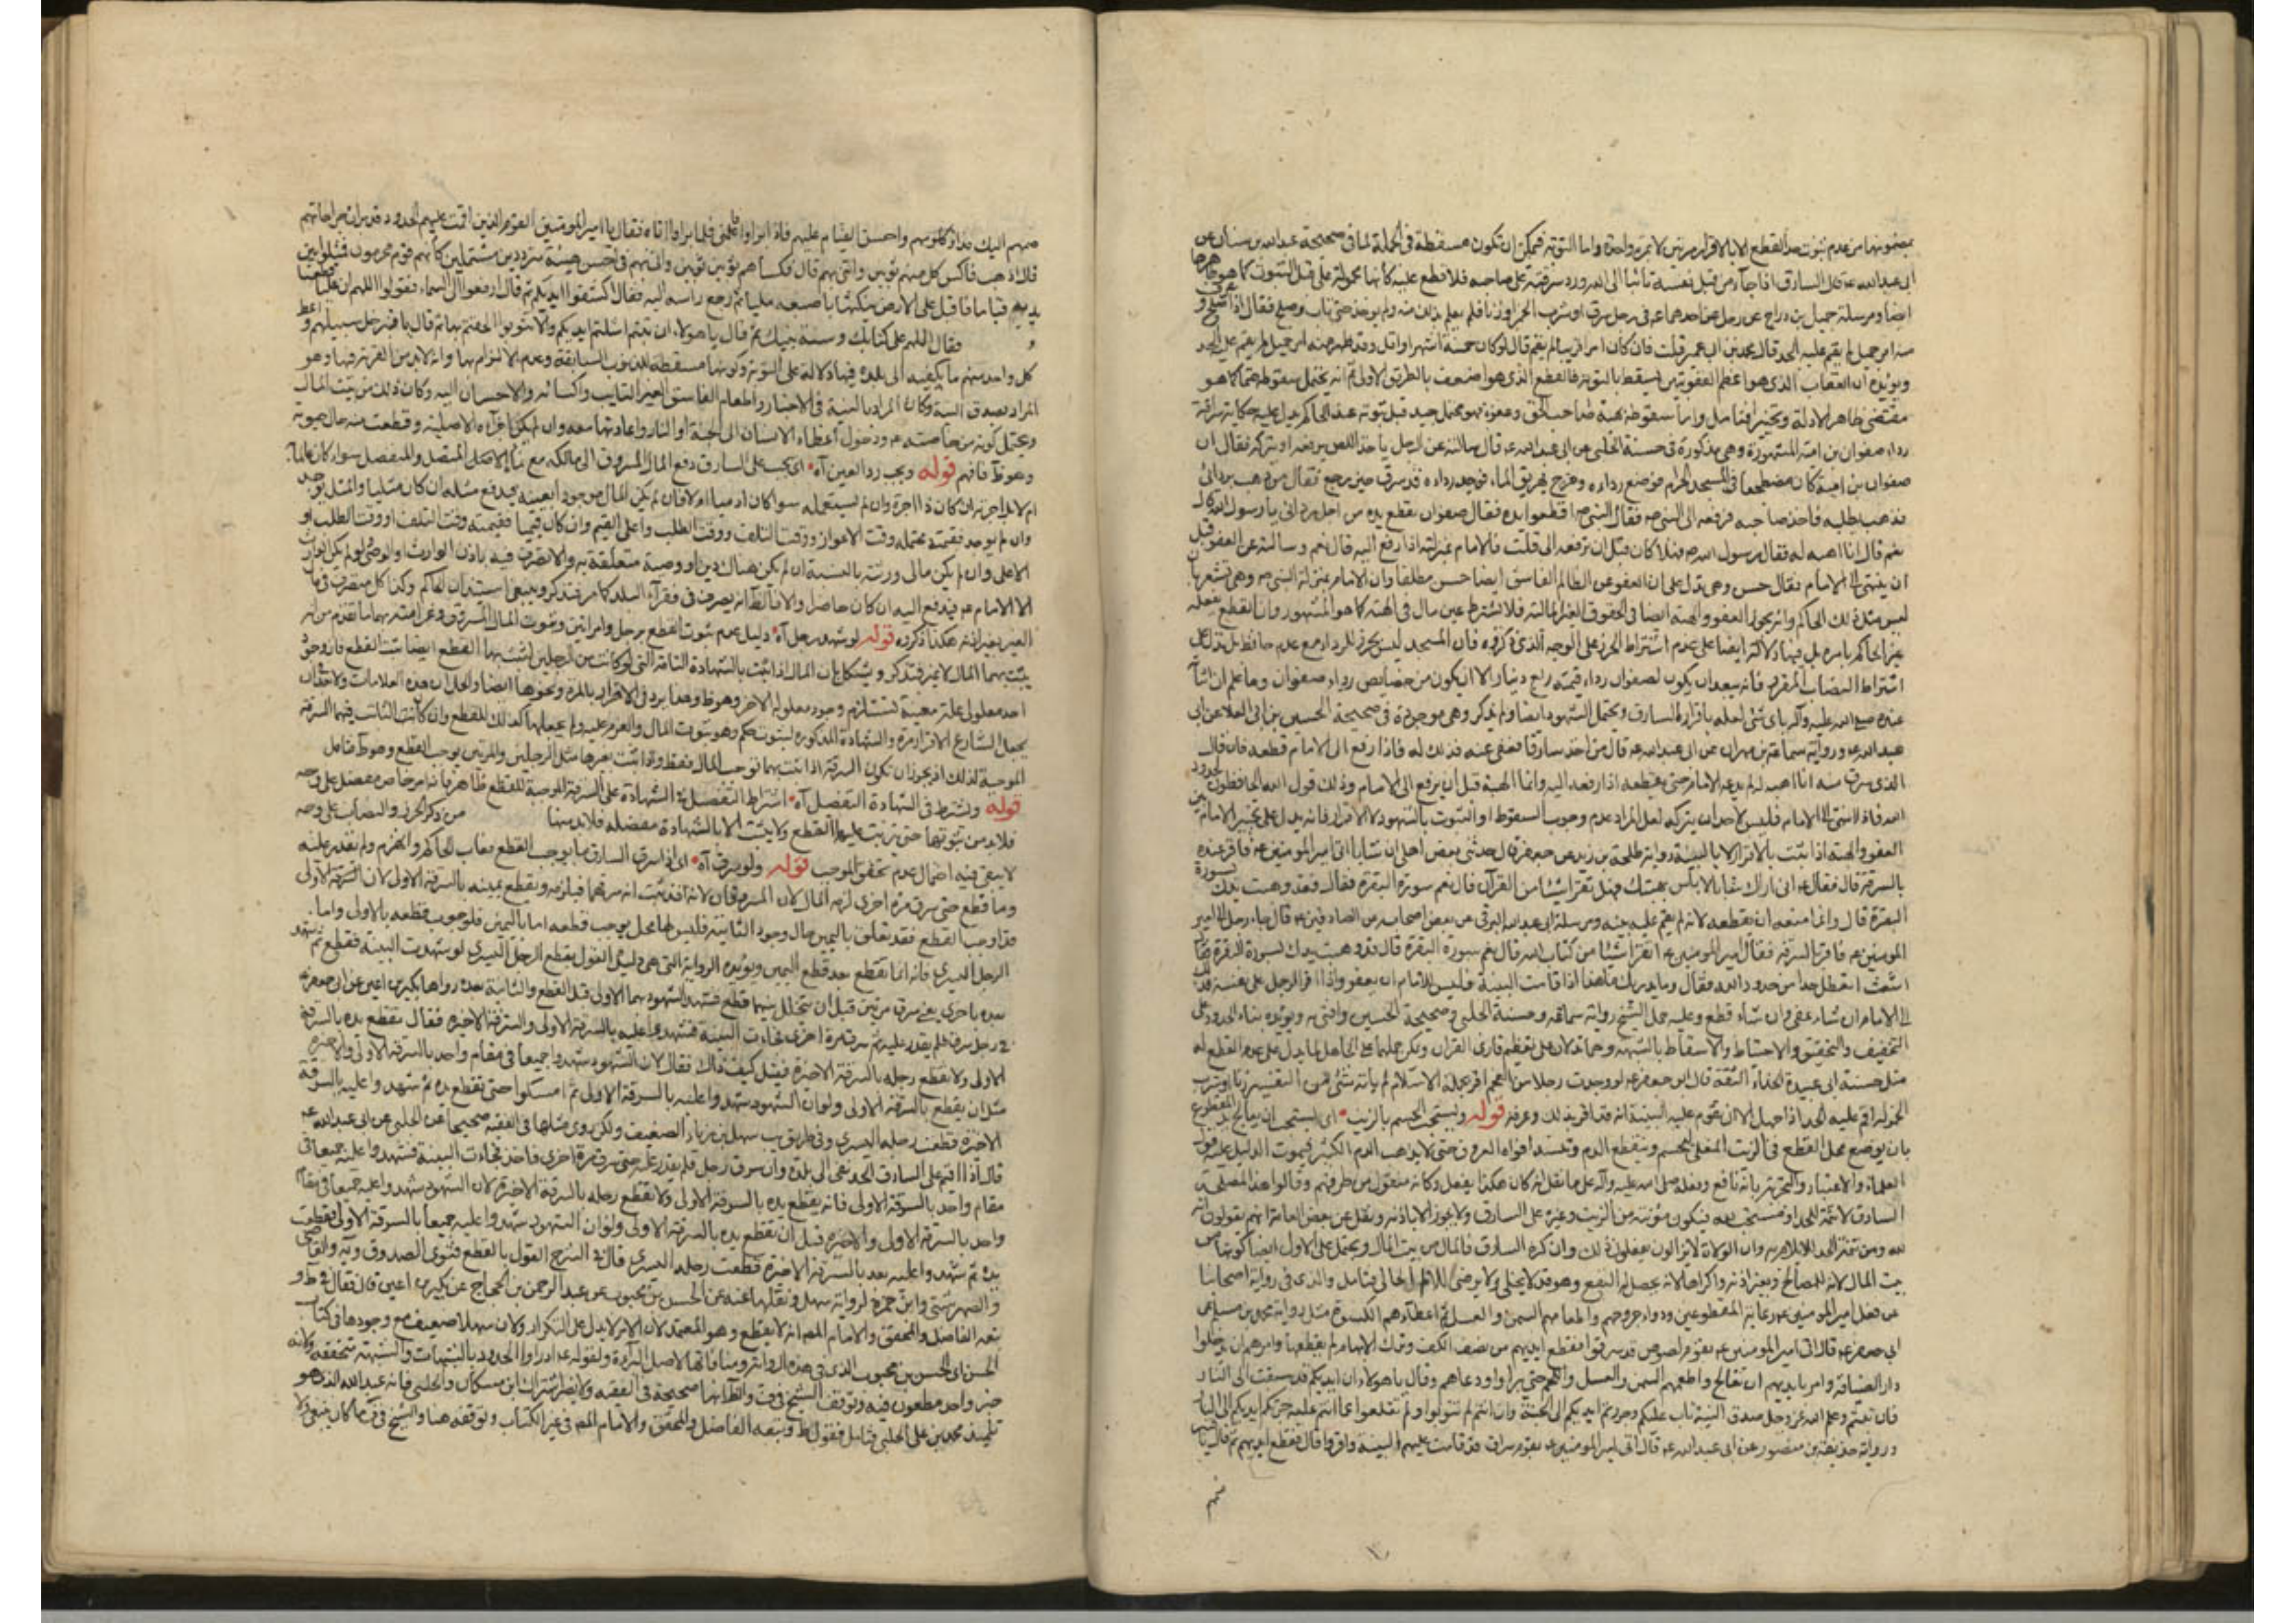 بمضمونها من عدم ثبوت حد القطع الا بالاقرار مرتين لا بمرة واحدة واما التوبة فيمكن ان تكون مسقطة في الجملة لما في صحيحة عبد الله بن سنان عن
ابي عبد الله ع قال السارق اذا جاء من قبل نفسه تائبا الى الله ورد سرقته على صاحبها فلا قطع عليه كأنها محمولة على قبل الثبوت كما هو
ايضا ومرسلة جميل بن دراج عن رجل عن احدهما ع في رجل سرق او شرب الخمر او زنا فلم يعلم بذلك منه ولم يؤخذ حتى تاب وصلح فقال اذا صلح و
منه امر جميل لم يقم عليه الحد قال محمد بن ابي عمير قلت فان كان امرا قريبا لم يقم قال لو كان خمسة اشهر او اقل وقد ظهر منه امر جميل لم يقم عليه الحد
ويؤيده ان العقاب الذي هو اعظم العقوبتين يسقط بالتوبة فالقطع الذي هو اضعف بالطريق الاولى ثم انه يحتمل سقوطه حتما كما هو
مقتضى ظاهر الادلة وتخييرا فتامل واما سقوطه بهبة صاحب الحق وعفوه فهو محتمل جيد قبل ثبوته عند الحاكم يدل عليه حكاية سرقة
رداء صفوان بن امية المشهورة وهي مذكورة في حسنة الحلبي عن ابي عبد الله ع قال سالته عن الرجل ياخذ اللص يرفعه او يتركه فقال ان
صفوان بن امية كان مضطجعا في المسجد الحرام فوضع رداءه وخرج يهريق الماء فوجد رداءه قد سرق حين رجع فقال من ذهب بردائي
فذهب يطلبه فاخذ صاحبه فرفعه الى النبي ص فقال النبي ص اقطعوا يده فقال صفوان تقطع يده من اجل ردائي يا رسول الله قال
نعم قال انا اهبه له فقال رسول الله ص فهلا كان قبل ان ترفعه الي قلت فالامام بمنزلته اذا رفع اليه قال نعم وسالته عن العفو قبل
ان ينتهى الى الامام فقال حسن وهي تدل على ان العفو عن الظالم الفاسق ايضا حسن مطلقا وان الامام بمنزلة النبي ص وهي تشعر بان
ليس مثل ذلك الحاكم وانه يجوز العفو والهبة ايضا في الحقوق الغير المالية فلا يشترط عين مال في الهبة كما هو المشهور وان القطع
غير الحاكم بامره بل فيها دلالة ايضا على عدم اشتراط الحرز على الوجه الذي ذكروه فان المسجد ليس بحرز للرداء مع عدم حافظ بل تدل على
اشتراط النصاب المقرر فانه يبعد ان يكون لصفوان رداء قيمته ربع دينار الا ان يكون من خصايص رداء صفوان وما علم ان اثباته
عنده صلى الله عليه وآله باي شئ لعله باقرار السارق ويحتمل الشهود ايضا ولم يذكر وهي موجودة في صحيحة الحسين بن ابي العلا عن ابي
عبد الله ع ورواية سماعة بن مهران عن ابي عبد الله ع قال من اخذ سارقا فعفى عنه فذلك له فاذا رفع الى الامام قطعه فان قال
الذي سرق منه انا اهبه له لم يدعه الامام حتى يقطعه اذا رفعه اليه وانما الهبة قبل ان يرفع الى الامام وذلك قول الله الحافظون لحدود
الله فاذا انتهى الى الامام فليس لاحد ان يتركه لعل المراد عدم وجوب السقوط او الثبوت بالشهود لا الاقرار فانه يدل على تخيير الامام بين
العفو والهبة اذا ثبت بالاقرار لا بالبينة رواية طلحة بن زيد عن جعفر ع قال حدثني بعض اهلي ان شابا اتى امير المؤمنين ع فاقر عنده
بالسرقة قال فقال ع اني اراك شابا لا باس بهيئتك فهل تقرأ شيئا من القرآن قال نعم سورة البقرة فقال فقد وهبت يدك لسورة
البقرة قال وانما منعه ان يقطعه لانه لم يقم عليه بينة ومرسلة ابي عبد الله البرقي عن بعض اصحابه عن الصادقين ع قال جاء رجل الى امير
المؤمنين ع فاقر بالسرقة فقال امير المؤمنين ع اتقرأ شيئا من كتاب الله قال نعم سورة البقرة قال قد وهبت يدك لسورة البقرة فقال
اشعث اتعطل حدا من حدود الله فقال وما يدريك ما هذا اذا قامت البينة فليس للامام ان يعفو واذا اقر الرجل على نفسه فذلك
الى الامام ان شاء عفى وان شاء قطع وعليه حمل الشيخ رواية سماعة وحسنة الحلبي وصحيحة الحسين وافتى به ويؤيده بناء الحدود على
التخفيف والتحقيق والاحتياط والاسقاط بالشبهة وهما تدلان على تعظيم قارئ القرآن ويمكن حملها على الجاهل لما يدل على عدم القطع له
مثل حسنة ابي عبيدة الحذاء الثقة قال ابو جعفر ع لو وجدت رجلا من العجم اقر بجملة الاسلام لم ياته شئ من التفسير زنا او شرب
الخمر لم اقم عليه الحد اذا جهله الا ان تقوم عليه البينة انه قد اقر بذلك وعرفه قوله ويستحب الحسم بالزيت اي يستحب ان يعالج يد المقطوع
بان يوضع محل القطع في الزيت المغلى لينحسم وينقطع الدم وتنسد افواه العروق حتى لا يذهب الدم الكثير فيموت الدليل عليه قول
العلماء والاعتبار والتجربة بانه نافع وفعله صلى الله عليه وآله على ما نقل انه كان هكذا يفعل وكانه منقول من طرقهم وقالوا هذا لمصلحة
السارق لا تتمة للحد او مستحب بعده فيكون مؤنته من الزيت وغيره على السارق ولا يجوز الا باذنه ونقل عن بعض العامة انهم يقولون انه
لله ومن تتمة الحد لئلا يسري وان الولاة لا يزالون يفعلون ذلك وان كره السارق فالمال من بيت المال ويحتمل على الاول ايضا كونها من
بيت المال لانه للمصالح وبغير اذنه واكراها لانه يحصل له النفع وهو قد لا يخلى ولا يرضى للالم الحالي فتامل والذي في رواية اصحابنا
عن فعل امير المؤمنين ع رعاية المقطوعين ودواء جروحهم واطعامهم السمن والعسل ثم اعطاءهم الكسوة مثل رواية محمد بن مسلم عن
ابي جعفر ع قال اتى امير المؤمنين ع بقوم لصوص قد سرقوا فقطع ايديهم من نصف الكف وترك الابهام لم يقطعها وامرهم ان يدخلوا
دار الضيافة وامر بايديهم ان تعالج واطعمهم السمن والعسل واللحم حتى برأوا ودعاهم وقال يا هؤلاء ان ايديكم قد سبقت الى النار
فان تبتم وعلم الله عز وجل صدق النية تاب عليكم وجررتم ايديكم الى الجنة وان انتم لم تتوبوا ولم تقلعوا عما انتم عليه جرتكم ايديكم الى النار
ورواية حذيفة بن منصور عن ابي عبد الله ع قال اتي امير المؤمنين ع بقوم سراق قد قامت عليهم البينة واقروا قال فقطع ايديهم ثم قال يا قنبر
ضمهم
ضمهم اليك فداو كلومهم واحسن القيام عليهم فاذا برأوا فاعلمني فلما برأوا اتاه فقال يا امير المؤمنين القوم الذين اقمت عليهم الحدود قد برأت جراحاتهم
قال اذهب فاكس كل منهم ثوبين وائتني بهم قال فكساهم ثوبين ثوبين واتى بهم في احسن هيئة متردين مشتملين كأنهم قوم محرمون فمثلوا بين
يديه قياما فاقبل على الارض ينكتها باصبعه مليا ثم رفع راسه اليهم فقال اكشفوا ايديكم ثم قال ارفعوا الى السماء فقولوا اللهم ان عليا قطعنا
فقال اللهم على كتابك وسنة نبيك ثم قال يا هؤلاء ان تبتم استلتم ايديكم والا تتوبوا الحقتم بها ثم قال يا قنبر خل سبيلهم واعط
كل واحد منهم ما يكفيه الى بلده فيها دلالة على التوبة وكونها مسقطة للذنوب السابقة وعدم الالتزام بها وانه لابد من القربة فيها وهو
المراد بصدق النية وكان المراد بالنية في الاخبار واطعام الفاسق الغير التايب واكسائه والاحسان اليه وكان ذلك من بيت المال
ويحتمل كونه من خاصته ع ودخول اعضاء الانسان الى الجنة او النار واعادتها معه وان لم يكن اجزاءه الاصلية وقطعت منه حال حيوته
وهو ظ فافهم قوله ويجب رد العين آه اي يجب على السارق دفع المال المسروق الى مالكه مع نمائه الاصل المتصل والمنفصل سواء كان عالما
ام لا واجرته ان كان ذا اجرة وان لم يستعمله سواء كان آدميا ام لا فان لم يكن المال موجودا بعينه يدفع مثله ان كان مثليا والمثل يوجد
وان لم يوجد فقيمته يحتمله وقت الاعواز ووقت التلف ووقت الطلب واعلى القيم وان كان قيميا فقيمته وقت التلف او وقت الطلب او
الاعلى وان لم يكن مالي ورثته بالنسبة ان لم يكن هناك دين او وصية متعلقة به والا تصرف فيه باذن الوارث او الوصي لو لم يكن الوارث
الا الامام ع فيدفع اليه ان كان حاضرا والا فالظ انه يصرف في فقراء البلد كما مر فتذكر وينبغي استيذان الحاكم وكذا كل متصرف في مال
الغير بغير اذنه هكذا ذكروه قوله لو شهد رجل آه دليل عدم ثبوت القطع برجل وامراتين وثبوت المال المسروق وغرامته بهما ما تقدم من انه
يثبت بهما المال لا غير فتذكر ويشكل بان المال اذا ثبت بالشهادة التامة التي لو كانت من الرجلين لثبت بهما القطع ايضا يثبت القطع فان وجود
احد معلولي علة معينة تستلزم وجود معلوله الاخر وهو ظ وهذا يرد في الاقرار بالمرة ونحوها ايضا والحل ان هذه العلامات ولا خفاء ان
يجعل الشارع الاقرار مرة والشهادة المذكورة لثبوت حكم وهو ثبوت المال والغرم عليه ولم يجعلها كذلك للقطع وان كانت الثابت فيهما السرقة
الموجبة لذلك اذ يجوز ان تكون السرقة اذا ثبت بهما توجب المال فقط واذا ثبت بغيرها مثل الرجلين والمرتين يوجب القطع وهو ظ فتامل
قوله ويشترط في الشهادة التفصيل آه اشتراط التفصيل في الشهادة على السرقة الموجبة للقطع ظاهر فانه امر خاص مفصل على وجه
فلابد من ثبوتها حتى يترتب عليها القطع ولا يثبت الا بالشهادة مفصلة فلابد منها من ذكر الحرز والنصاب على وجه
لا يبقى فيه احتمال عدم تحقق الموجب قوله ولو سرق آه اي اذا سرق السارق ما يوجب القطع فغاب الحاكم او انهزم ولم يقدر عليه
وما قطع حتى سرق مرة اخرى لزمه المال لان المسروقان لانه قد ثبت انه سرقهما فيلزمه ويقطع يمينه بالسرقة الاولى لان السرقة الاولى
قد اوجب القطع فقد تعلق باليمين حال وجود الثانية فليس لها محل يوجب قطعه اما باليمين فلوجوب قطعه بالاولى واما
الرجل اليسرى فانه انما تقطع بعد قطع اليمين ويؤيده الرواية التي هي دليل القول بقطع الرجل اليسرى لو شهدت البينة فقطع ثم شهد
بعده باخرى يعني سرق مرتين قبل ان يتخلل بينهما قطع فشهد الشهود بهما الاولى قبل القطع والثانية بعده رواها بكير بن اعين عن ابي جعفر ع
في رجل سرق فلم يقدر عليه ثم سرق مرة اخرى فجاءت البينة فشهدوا عليه بالسرقة الاولى والسرقة الاخيرة فقال تقطع يده بالسرقة
الاولى ولا تقطع رجله بالسرقة الاخيرة فقيل كيف ذاك فقال لان الشهود شهدوا جميعا في مقام واحد بالسرقة الاولى والاخيرة
قبل ان يقطع بالسرقة الاولى ولو ان الشهود شهدوا عليه بالسرقة الاولى ثم امسكوا حتى تقطع يده ثم شهدوا عليه بالسرقة
الاخيرة قطعت رجله اليسرى وفي طريق يب سهل بن زياد الضعيف ولكن روى مثلها في الفقيه صحيحا عن الحلبي عن ابي عبد الله ع
قال اذا اقيم على السارق الحد نفي الى بلدة وان سرق رجل فلم يقدر عليه حتى سرق مرة اخرى فاخذ فجاءت البينة فشهدوا عليه جميعا في
مقام واحد بالسرقة الاولى فانه يقطع يده بالسرقة الاولى ولا تقطع رجله بالسرقة الاخيرة لان الشهود شهدوا عليه جميعا في مقام
واحد بالسرقة الاولى والاخيرة قبل ان تقطع يده بالسرقة الاولى ولو ان الشهود شهدوا عليه جميعا بالسرقة الاولى فقطعت
يده ثم شهدوا عليه بعد بالسرقة الاخيرة قطعت رجله اليسرى قال في الشرح القول بالقطع فتوى الصدوق ويه والقاضي
والصهرشتي وابن حمزة لرواية سهل ونقلها عنه عن الحسن بن محبوب عن عبد الرحمن بن الحجاج عن بكير بن اعين قال فقال في ط و
تبعه الفاضل والمحقق والامام المصـ انه لا يقطع وهو المعتمد لان الامر لا يدل على التكرار ولان سهلا ضعيف مع وجودها في كتاب
الحسن اي الحسن بن محبوب الذي في هذه الرواية ومنافاتها لاصل البراءة ولقوله ع ادرأوا الحدود بالشبهات والشبهة متحققة ولانه
خبر واحد مطعون فيه وتوقف الشيخ في ف والظ انها صحيحة في الفقيه ولا يضر اشتراك ابن مسكان والحلبي فانه عبد الله الذي هو
تلميذ محمد بن علي الحلبي فتامل فقول ط وتبعه الفاضل والمحقق والامام المصـ في غير الكتاب وتوقفه هنا والشيخ في ف ما كان ينبغي ولا